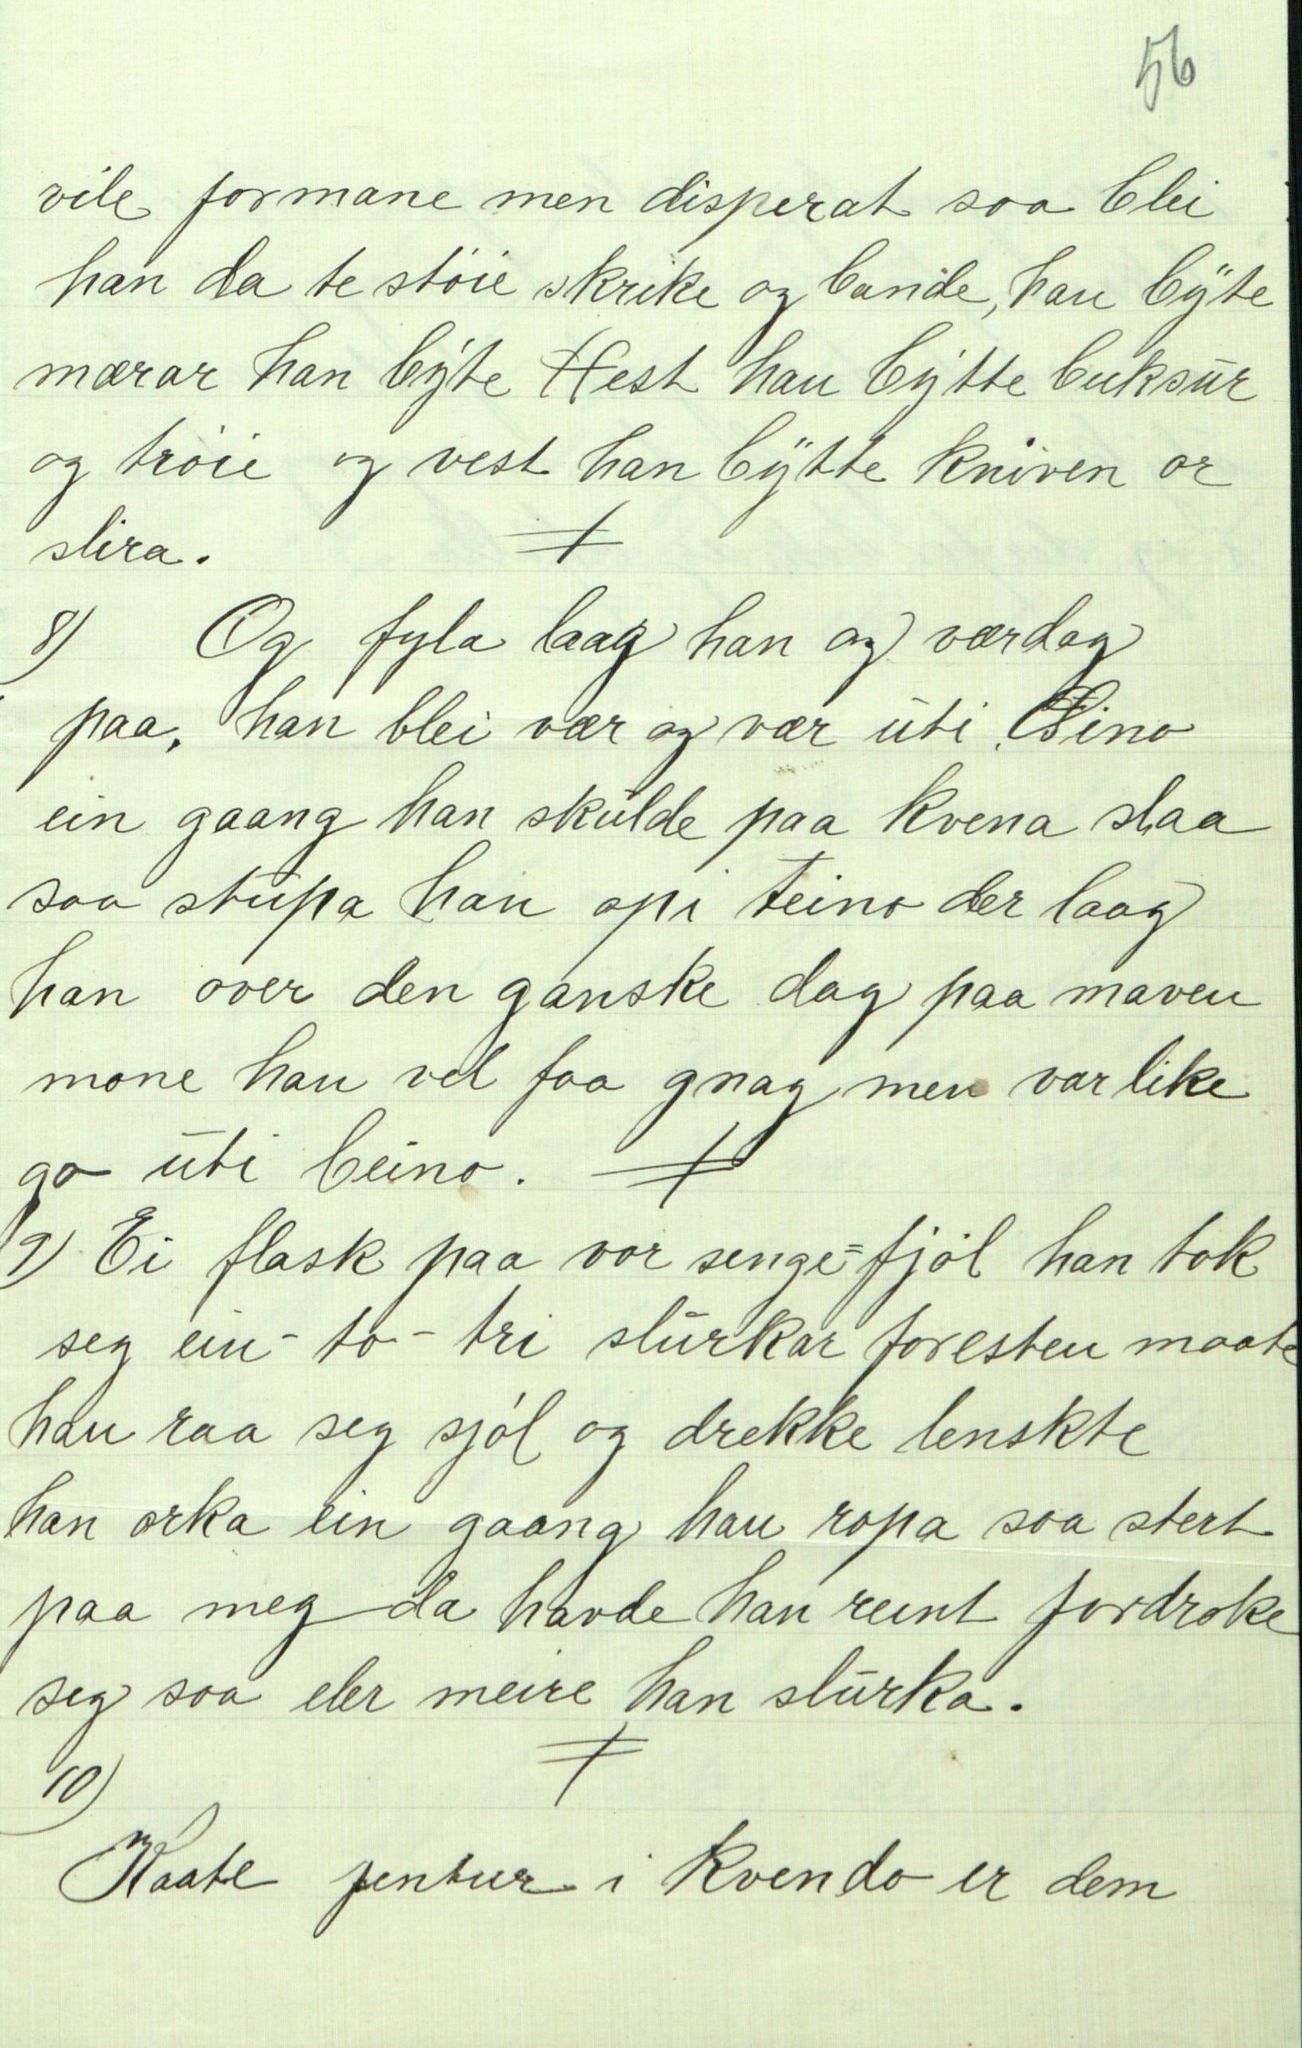 56
vile formane men disperat saa blei
han da te støie skrike og bande, han byte
mærar han byte Hest han bytte buksur
og trøie og vest han bytte kniven or
slira.
8) Og fyla laag han og værdag
paa, han blei vær og vær uti
ein gaang han skulde paa kvena slaa
saa stupa han opi teino der laag
han over den ganske dag paa maven
mone han vel faa gnag men var like
go uti beino.
9) Ei flask paa vor senge=fjøl han tok
seg ein - to - tri slurkar foresten maate
han raa seg sjøl og drekke lenskte
han orka ein gaang han ropa saa stert
paa meg da havde han reint fordroke
seg saa eler meire han slurka.
10)
Kaate jentur i Kvendo er dem